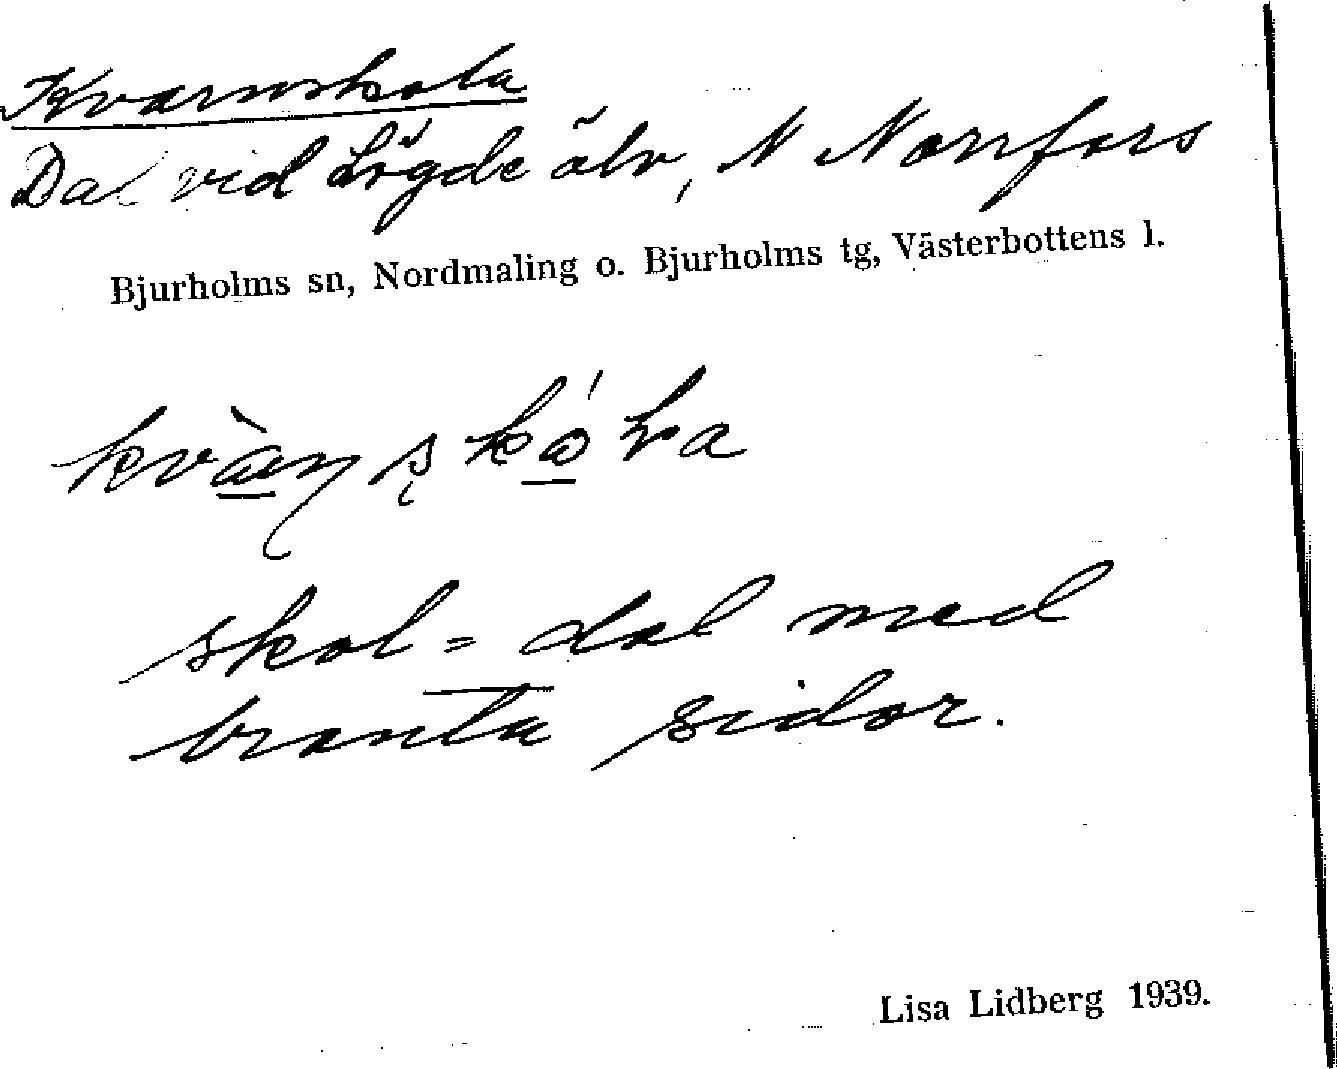 Kvarnskola
Dal vid Lögde älv, N Norrfors
Bjurholms sn, Nordmaling o. Bjurholms tg, Västerbottens l.
skol = dal med
branta sidor.
Lisa Lidberg 1939.